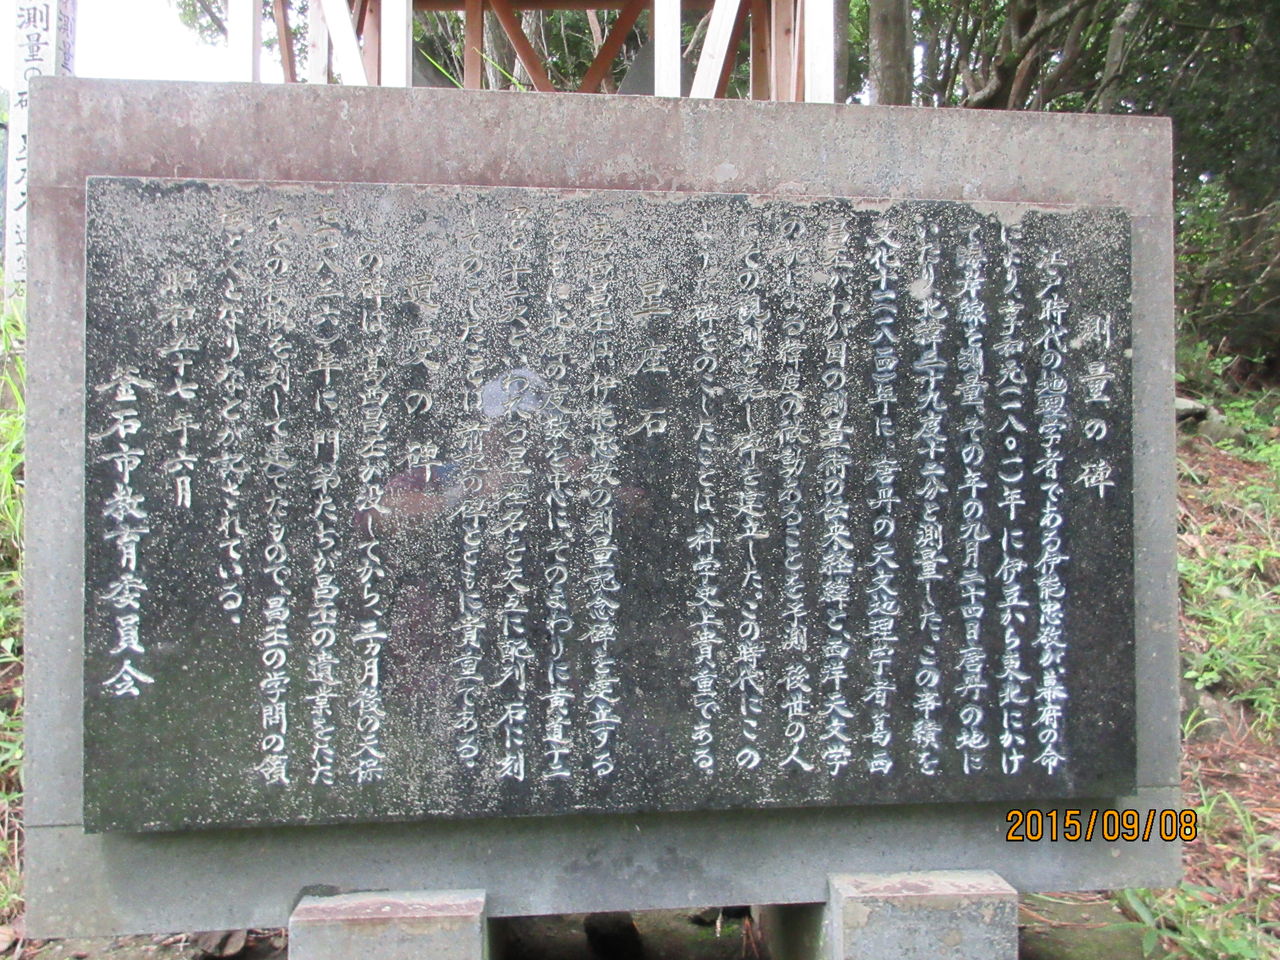 測量の碑
江戸時代の地理学者である伊能忠敬が幕府の命
により、享和元(一八〇一)年に伊豆から東北にかけ
て海岸線を測量、その年の九月二十四日唐丹の地に
いたり、北緯三十九度十二分と測量した。この事績を
文化十一(一八一四)年に、唐丹の天文地理学者葛西
昌丕がわが国の測量術の伝来経緯と、西洋天文学
の
による緯度の微動あることを予測、後世の人
びとの観測を
し、碑を建立した。この時代にこの
ような碑をのこしたことは、科学史上貴重である。
星座石
葛西昌丕は、伊能忠敬の測量記念碑を建立する
とともに、北緯の度数を中心に、そのまわりに黄道十二
宮と十二次
の星座石名を交互に配列、石に刻
してのこしたことは、前記の碑とともに貴重である。
の碑
この碑は、葛西昌丕が没してから、三ヵ月後の天保
年に、門弟たちが昌丕の遺業をたた
えその
を刻して建てたもので、昌丕の学問の領
となりなどが記されている。
昭和五十七年六月
釜石市教育委員会
測量
2015/09/08